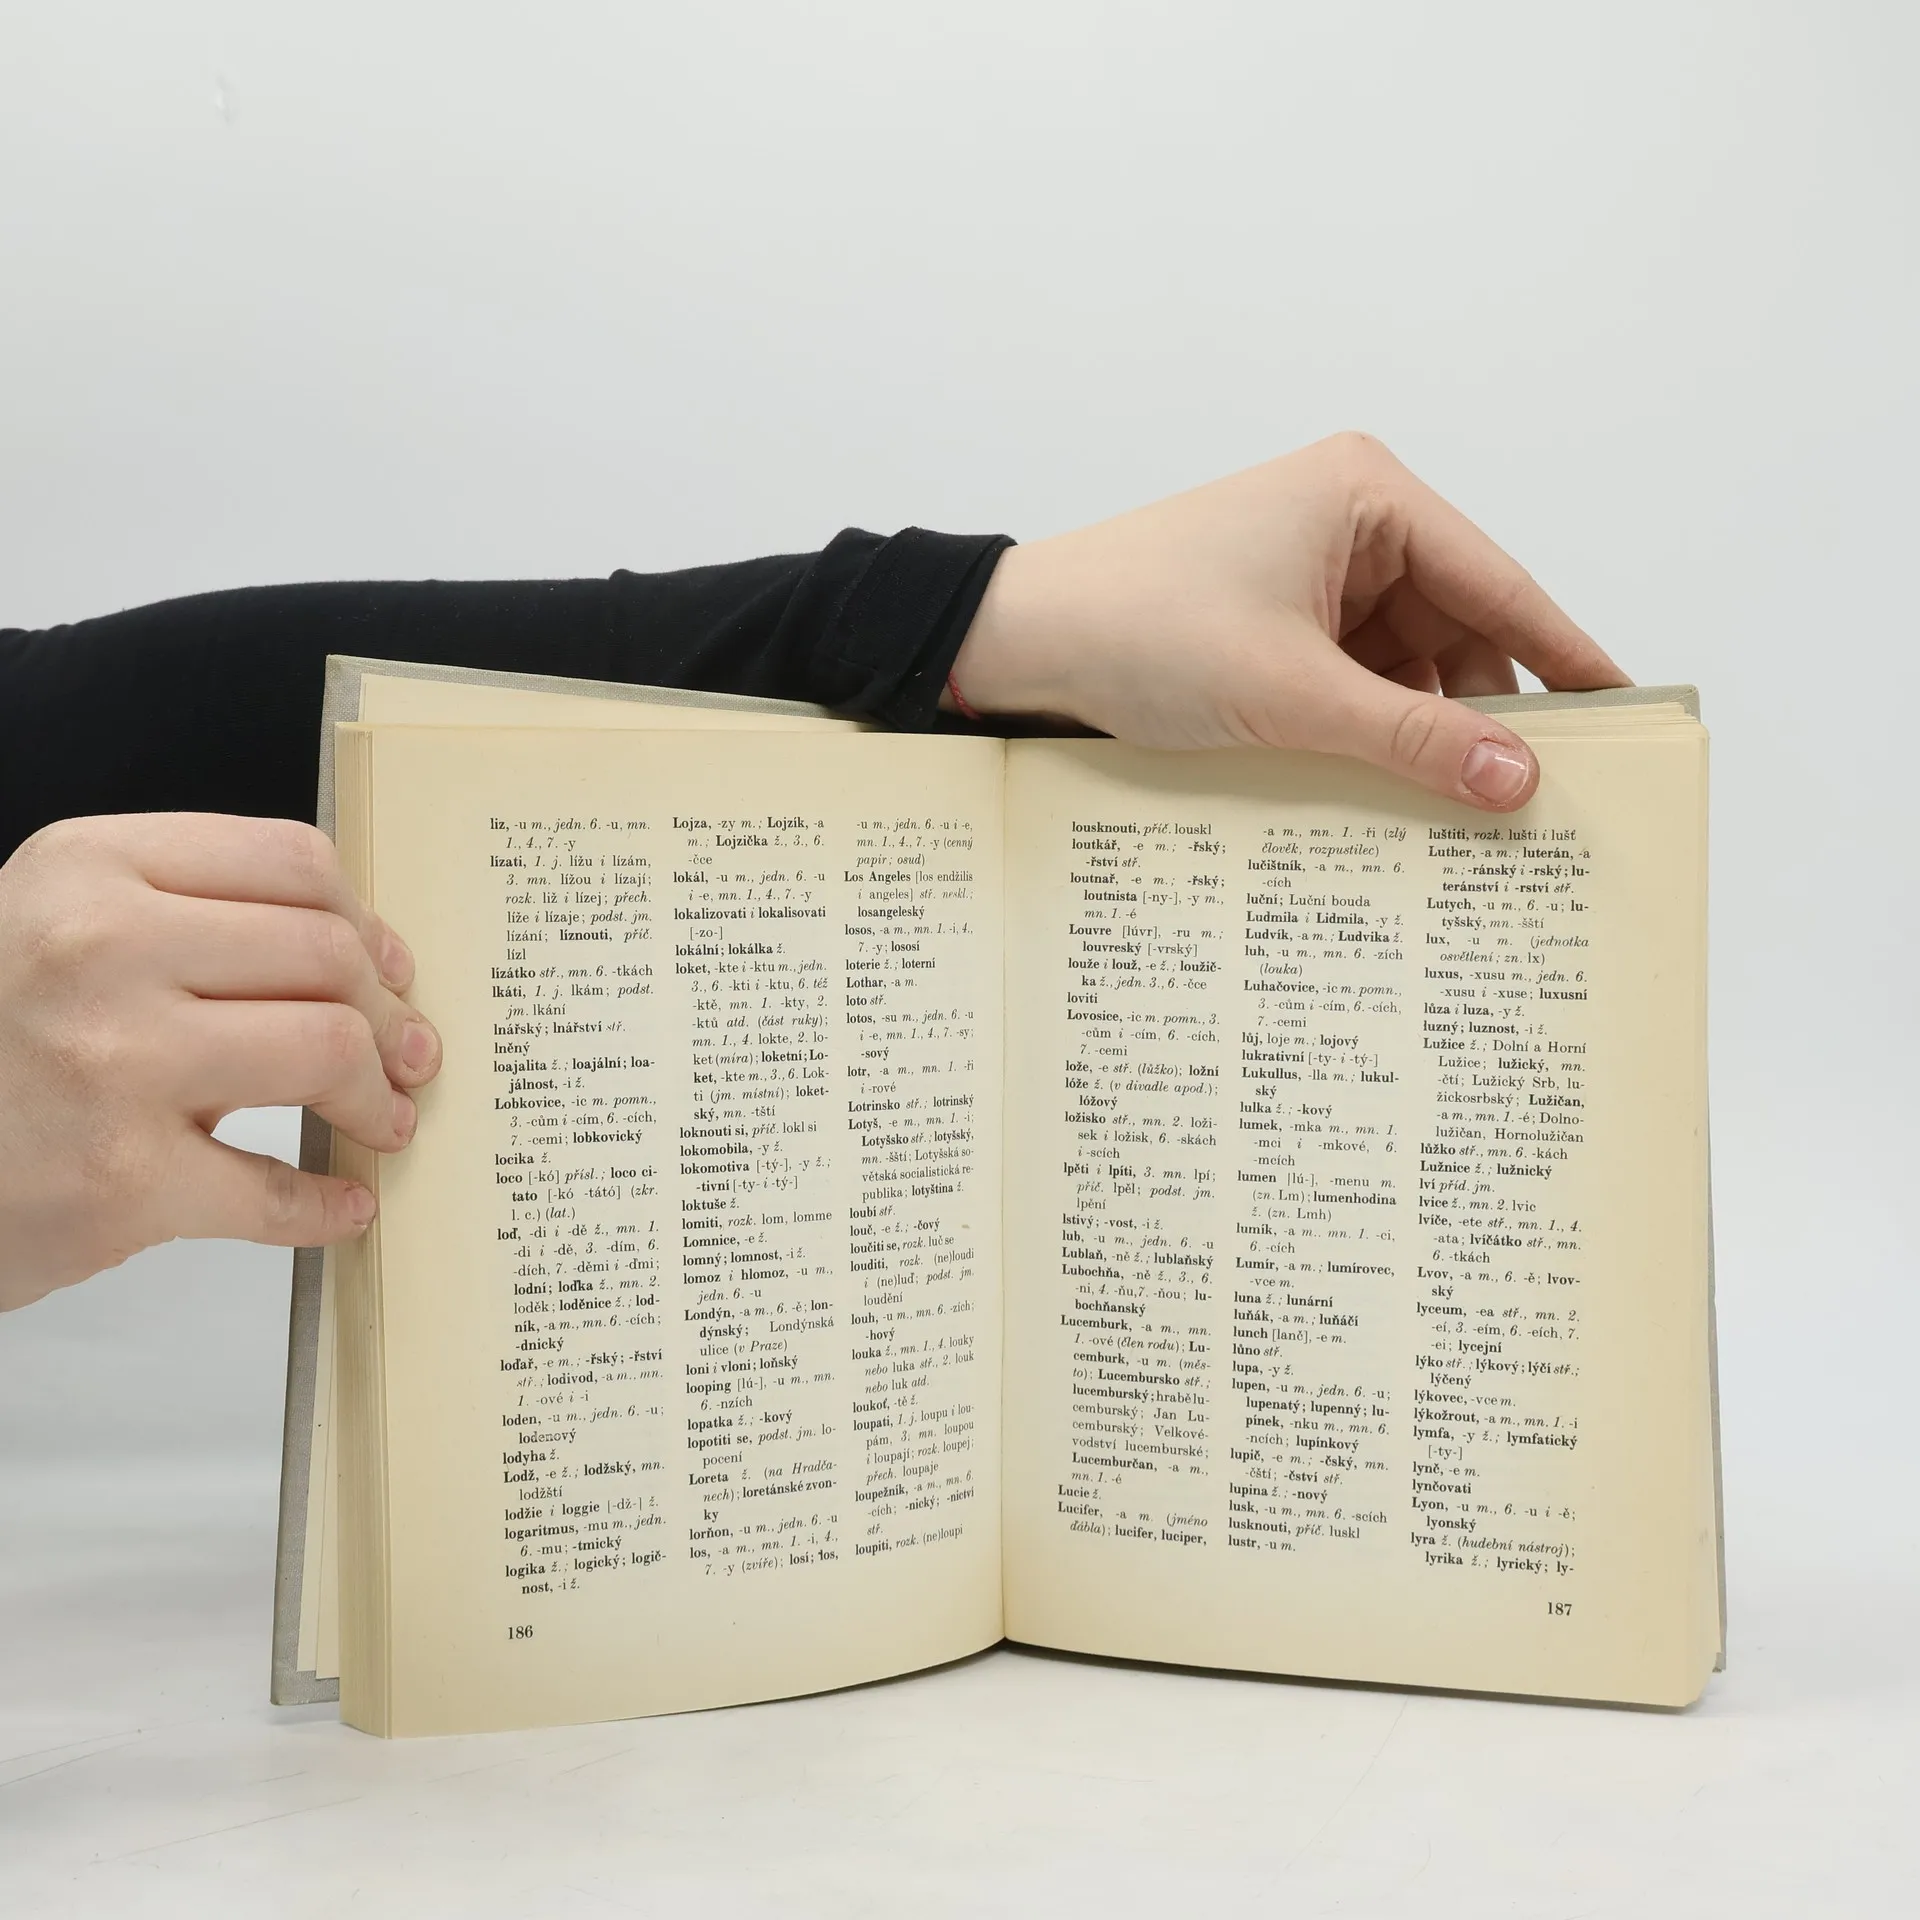 liz, -u m., jedn. 6. -u, mn.
1., 4., 7. -y
lízati, 1. j. lížu i lízám,
3. mn. lížou i lízají;
rozk. liž i lízej; přech.
líže i lízaje; podst. jm.
lízání; líznouti, příč.
lízl
lízátko stř., mn. 6. -tkách
lkáti, 1. j. lkám; podst.
jm. lkání
lnářský; lnářství stř.
lněný
loajalita ž.; loajální; loa-
jálnost, -i ž.
Lobkovice, -ic m. pomn.,
3. -cům i -cím, 6. -cích,
7. -cemi; lobkovický
locika ž.
loco [-kó] přísl.; loco ci-
tato [-kó -tátó] (zkr.
l. c.) (lat.)
loď, -di i -dě ž., mn. 1.
-di i -dě, 3. -dím, 6.
-dích, 7. -děmi i -ďmi;
lodní; loďka ž., mn. 2.
loděk; loděnice ž.; lod-
ník, -a m., mn. 6. -cích;
-dnický
loďař, -e m.; -řský; -řství
stř.; lodivod, -a m., mn.
1. -ové i -i
loden, -u m., jedn. 6. -u;
lodenový
lodyha ž.
Lodž, -e ž.; lodžský, mn.
lodžští
lodžie i loggie [-dž-] ž.
logaritmus, -mu m., jedn.
6. -mu; -tmický
logika ž.; logický; logič-
nost, -i ž.
186
Lojza, -zy m.; Lojzík, -a
m.; Lojzička ž., 3., 6.
-čce
lokál, -u m., jedn. 6. -u
i -e, mn. 1., 4., 7. -y
lokalizovati i lokalisovati
[-zo-]
lokální; lokálka ž.
loket, -kte i -ktu m., jedn.
3., 6. -kti i -ktu, 6. též
-ktě, mn. 1. -kty, 2.
-ktů atd. (část ruky);
mn. 1., 4. lokte, 2. lo-
ket (míra); loketní; Lo-
ket, -kte m., 3., 6. Lok-
ti (jm. místní); loket-
ský, mn. -tští
loknouti si, příč. lokl si
lokomobila, -y ž.
lokomotiva [-tý-], -y ž.;
-tivní [-ty- i -tý-]
loktuše ž.
lomiti, rozk. lom, lomme
Lomnice, -e ž.
lomný; lomnost, -i ž.
lomoz i hlomoz, -u m.,
jedn. 6. -u
Londýn, -a m., 6. -ě; lon-
dýnský; Londýnská
ulice (v Praze)
loni i vloni; loňský
looping [lú-], -u m., mn.
6. -nzích
lopatka ž.; -kový
lopotiti se, podst. jm. lo-
pocení
Loreta ž. (na Hradča-
nech); loretánské zvon-
ky
lorňon, -u m., jedn. 6. -u
los, -a m., mn. 1. -i, 4.,
7. -y (zvíře); losí; los,
-u m., jedn. 6. -u i -e,
mn. 1., 4., 7. -y (cenný
papír; osud)
Los Angeles [los endžilis
i angeles] stř. neskl.;
losangeleský
losos, -a m., mn. 1. -i, 4.,
7. -y; lososí
loterie ž.; loterní
Lothar, -a m.
loto stř.
lotos, -su m., jedn. 6. -u
i -e, mn. 1., 4., 7. -sy;
-sový
lotr, -a m., mn. 1. -ři
i -rové
Lotrinsko stř.; lotrinský
Lotyš, -e m., mn. 1. -i;
Lotyšsko stř.; lotyšský,
mn. -šští; Lotyšská so-
větská socialistická re-
publika; lotyština ž.
loubí stř.
louč, -e ž.; -čový
loučiti se, rozk. luč se
louditi, rozk. (ne)loudi
i (ne)luď; podst. jm.
loudění
louh, -u m., mn. 6. -zích;
-hový
louka ž., mn. 1., 4. louky
nebo luka stř., 2. louk
nebo luk atd.
loukoť, -tě ž.
loupati, 1. j. loupu i lou-
pám, 3. mn. loupou
i loupají; rozk. loupej;
přech. loupaje
loupežník, -a m., mn. 6.
-cích; -nický; -nictví
stř.
loupiti, rozk. (ne)loupi
lousknouti, příč. louskl
loutkář, -e m.; -řský;
-řství stř.
loutnař, -e m.; -řský;
loutnista [-ny-], -y m.,
mn. 1. -é
Louvre [lúvr], -ru m.;
louvreský [-vrský]
louže i louž, -e ž.; loužič-
ka ž., jedn. 3., 6. -čce
loviti
Lovosice, -ic m. pomn., 3.
-cům i -cím, 6. -cích,
7. -cemi
lože, -e stř. (lůžko); ložní
lóže ž. (v divadle apod.);
lóžový
ložisko stř., mn. 2. loži-
sek i ložisk, 6. -skách
i -scích
lpěti i lpíti, 3. mn. lpí;
příč. lpěl; podst. jm.
lpění
lstivý; -vost, -i ž.
lub, -u m., jedn. 6. -u
Lublaň, -ně ž.; lublaňský
Lubochňa, -ně ž., 3., 6.
-ni, 4. -ňu, 7. -ňou; lu-
bochňanský
Lucemburk, -a m., mn.
1. -ové (člen rodu); Lu-
cemburk, -u m. (měs-
to); Lucembursko stř.;
lucemburský; hrabě lu-
cemburský; Jan Lu-
cemburský; Velkové-
vodství lucemburské;
Lucemburčan, -a m.,
mn. 1. -é
Lucie ž.
Lucifer, -a m. (jméno
ďábla); lucifer, luciper,
-a m., mn. 1. -ři (zlý
člověk, rozpustilec)
lučištník, -a m., mn. 6.
-cích
luční; Luční bouda
Ludmila i Lidmila, -y ž.
Ludvík, -a m.; Ludvika ž.
luh, -u m., mn. 6. -zích
(louka)
Luhačovice, -ic m. pomn.,
3. -cům i -cím, 6. -cích,
7. -cemi
lůj, loje m.; lojový
lukrativní [-ty- i -tý-]
Lukullus, -lla m.; lukul-
ský
lulka ž.; -kový
lumek, -mka m., mn. 1.
-mci i -mkové, 6.
-mcích
lumen [lú-], -menu m.
(zn. Lm); lumenhodina
ž. (zn. Lmh)
lumík, -a m., mn. 1. -ci,
6. -cích
Lumír, -a m.; lumírovec,
-vce m.
luna ž.; lunární
luňák, -a m.; luňáčí
lunch [lanč], -e m.
lůno stř.
lupa, -y ž.
lupen, -u m., jedn. 6. -u;
lupenatý; lupenný; lu-
pínek, -nku m., mn. 6.
-ncích; lupínkový
lupič, -e m.; -čský, mn.
-čští; -čství stř.
lupina ž.; -nový
lusk, -u m., mn. 6. -scích
lusknouti, příč. luskl
lustr, -u m.
luštiti, rozk. lušti i lušť
Luther, -a m.; luterán, -a
m.; -ránský i -rský; lu-
teránství i -rství stř.
Lutych, -u m., 6. -u; lu-
tyšský, mn. -šští
lux, -u m. (jednotka
osvětlení; zn. lx)
luxus, -xusu m., jedn. 6.
-xusu i -xuse; luxusní
lůza i luza, -y ž.
luzný; luznost, -i ž.
Lužice ž.; Dolní a Horní
Lužice; lužický, mn.
-čtí; Lužický Srb, lu-
žickosrbský; Lužičan,
-a m., mn. 1. -é; Dolno-
lužičan, Hornolužičan
lůžko stř., mn. 6. -kách
Lužnice ž.; lužnický
lví příd. jm.
lvice ž., mn. 2. lvic
lvíče, -ete stř., mn. 1., 4.
-ata; lvíčátko stř., mn.
6. -tkách
Lvov, -a m., 6. -ě; lvov-
ský
lyceum, -ea stř., mn. 2.
-eí, 3. -eím, 6. -eích, 7.
-ei; lycejní
lýko stř.; lýkový; lýčí stř.;
lýčený
lýkovec, -vce m.
lýkožrout, -a m., mn. 1. -i
lymfa, -y ž.; lymfatický
[-ty-]
lynč, -e m.
lynčovati
Lyon, -u m., 6. -u i -ě;
lyonský
lyra ž. (hudební nástroj);
lyrika ž.; lyrický; ly-
187